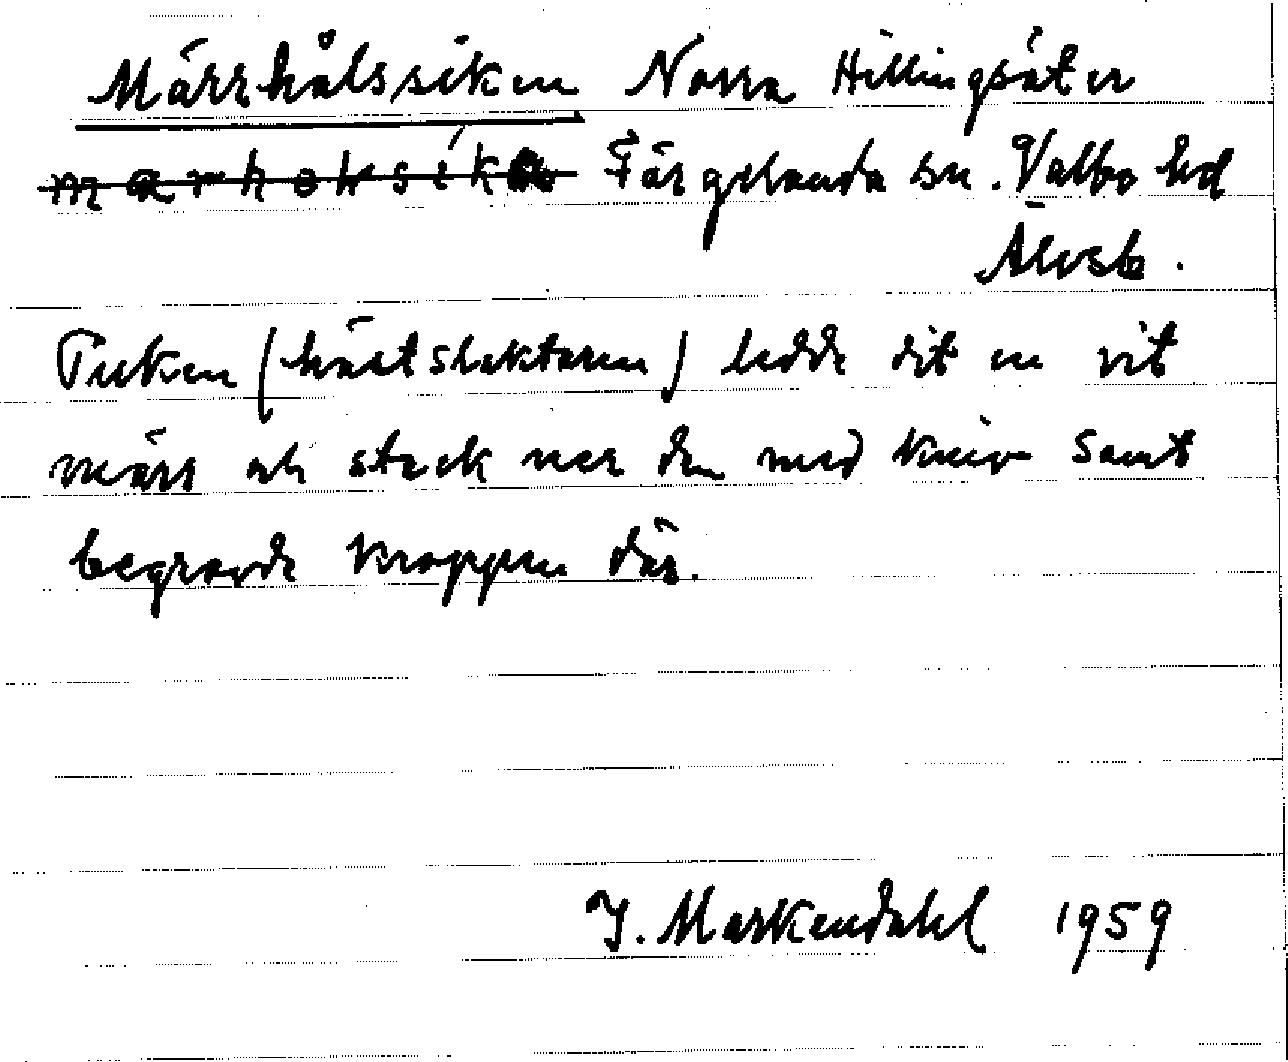 Märrhålssiken Norra Hillingsäter
Färgelanda sn. Valbo hd
Älvsb.
Puken (hästslaktaren) ledde dit en vit
märr och stack ner den med kniv samt
begravde kroppen där.
J. Markendahl 1959